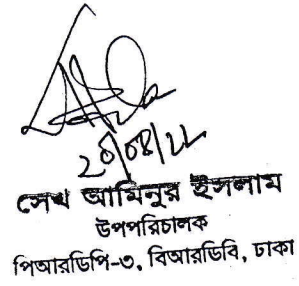 সেখ আমিনুর ইসলাম
উপপরিচালক
পিআরডিপি-৩, বিআরডিবি, ঢাকা